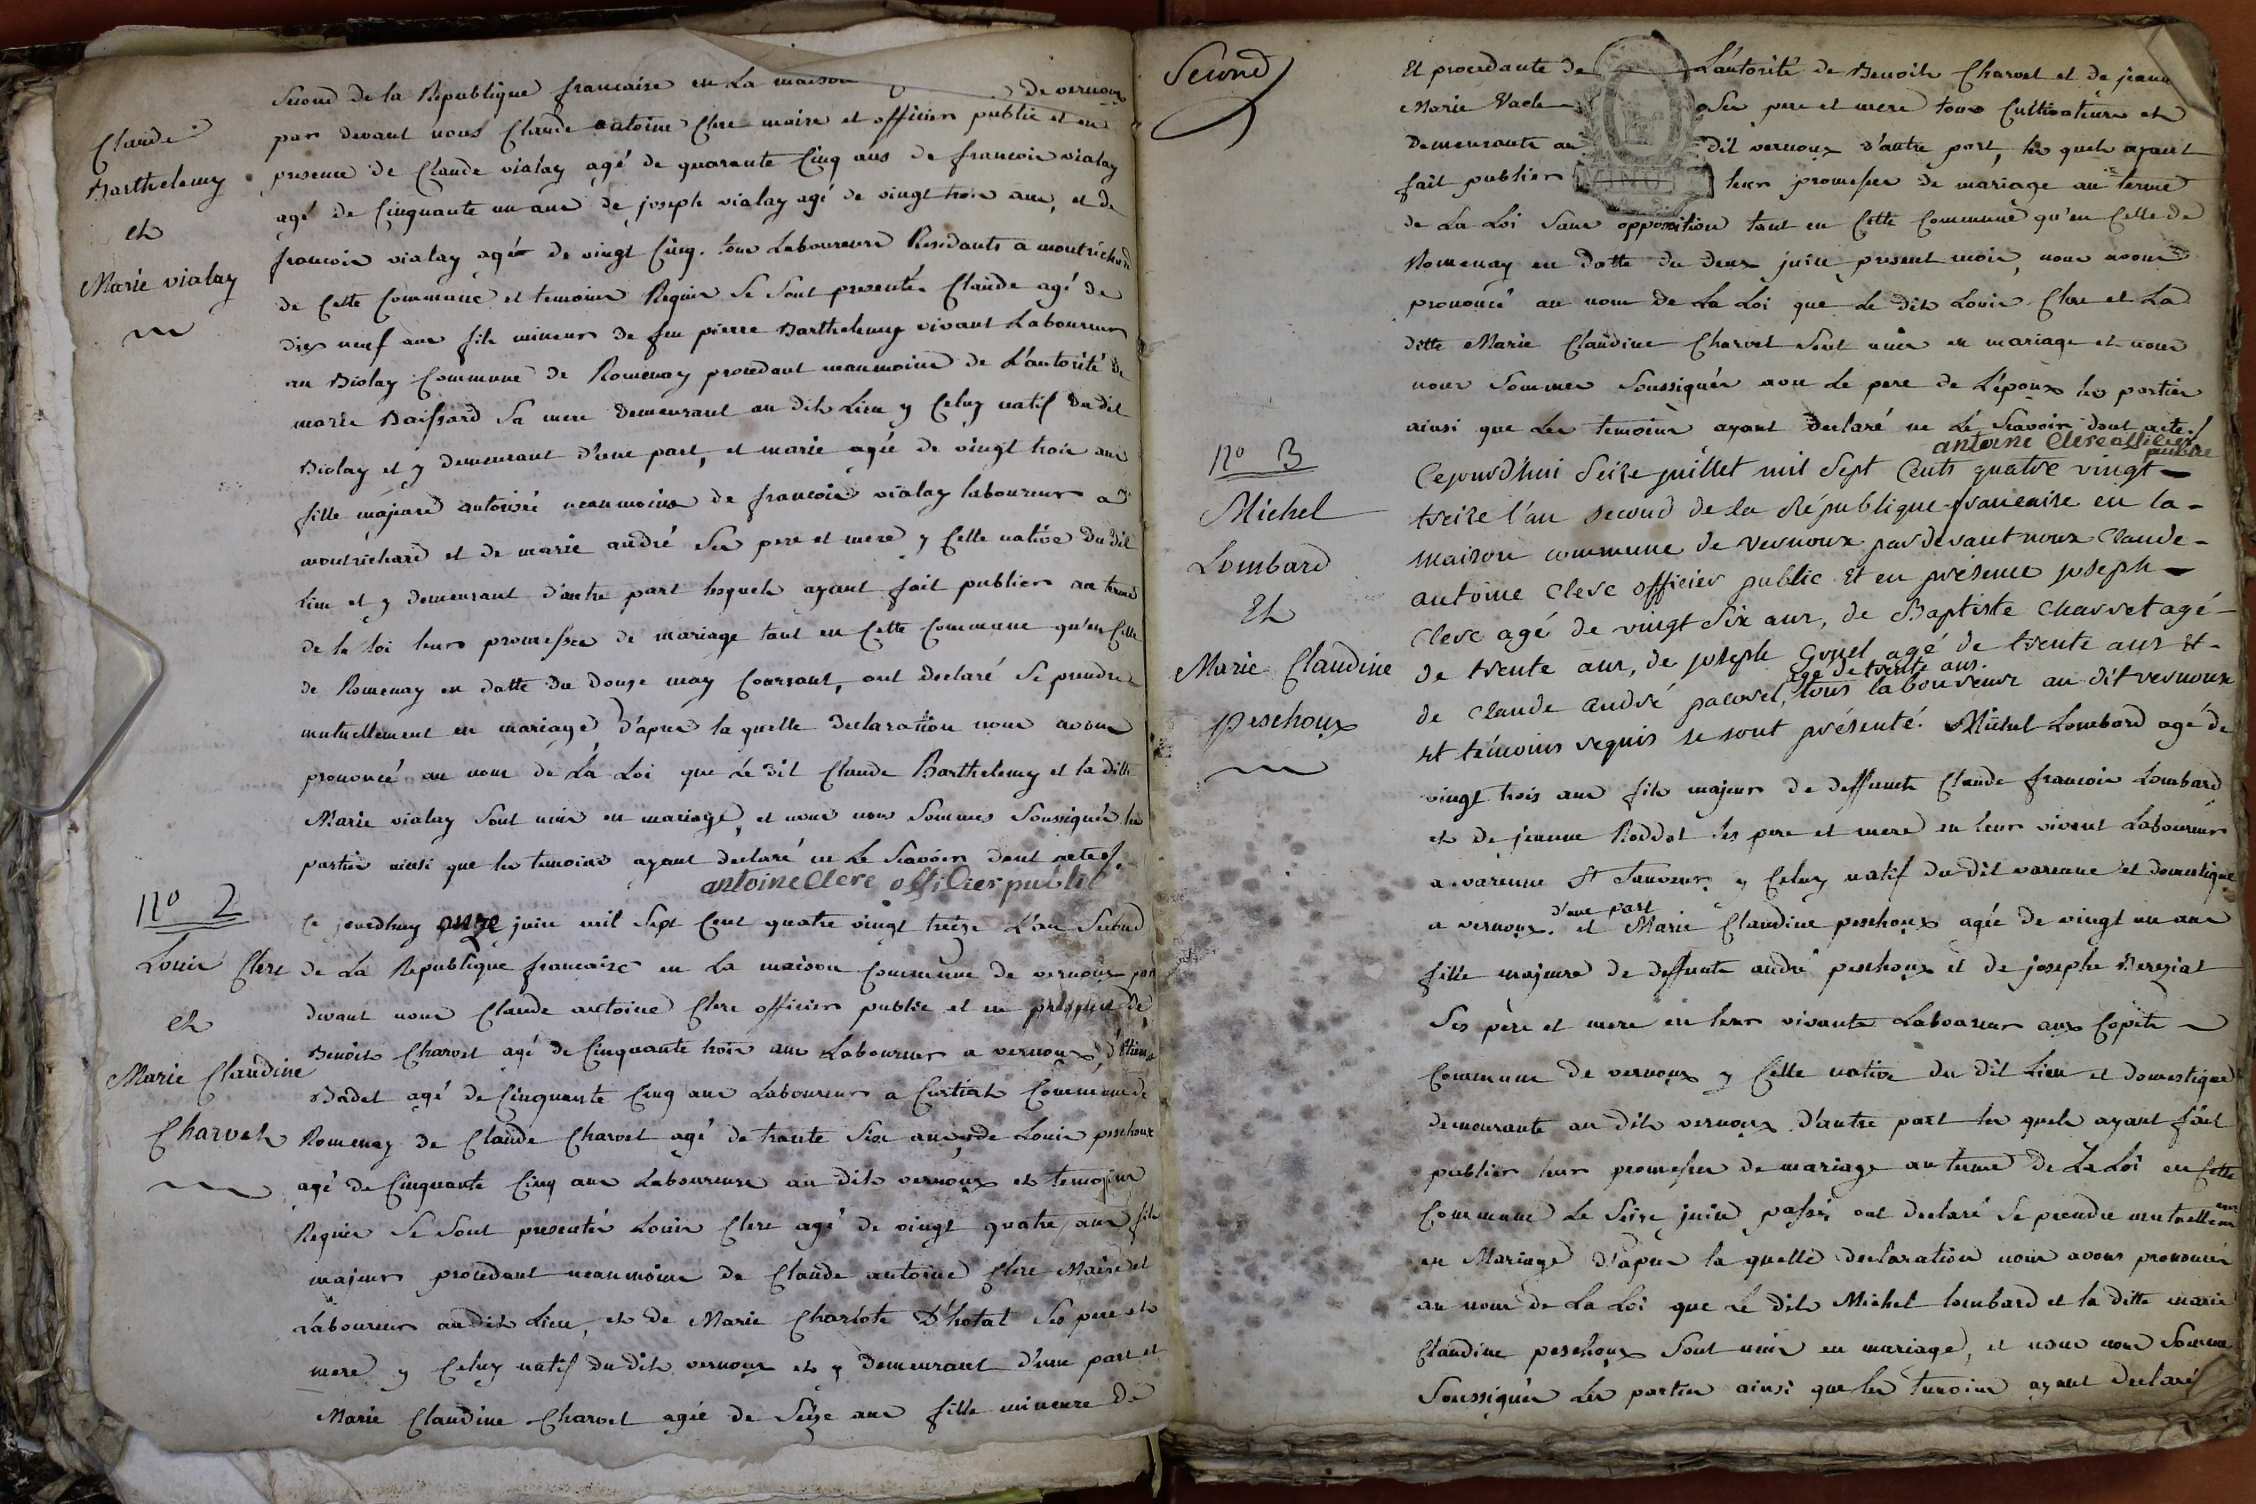 Claude
Barthelemy
et
Marie vialay
Second de la Republique francaise en La maison de vernoux
par devant nous Claude antoine Clerc maire et officier public et en
presence de Claude vialay agé de quarante Cinq ans de francois vialay
agé de Cinquante un ans de joseph vialay agé de vingt trois ans, et de
francois vialay agé de vingt Cinq. tous Laboureurs Residants a montrichard
de Cette Commune et temoins Requis Se Sont presentés Claude agé de
dix neuf ans fils mineur de feu pierre Barthelemy vivant Laboureur
au Biolay Commune de Romenay procedant neanmoins de L'autorité de
marie Baissard Sa mere demeurant au dit Lieu y Celuy natif du dit
Biolay et y demeurant d'une part, et marie agée de vingt trois ans
fille majeure autorisée neanmoins de francois vialay laboureur a
montrichard et de marie andré Ses pere et mere y Celle native du dit
lieu et y demeurant d'autre part lesquels ayant fait publier au terme
de la loi leurs promesses de mariage tant en Cette Commune qu'en Celle
de Romenay en datte du douze may Courrant, ont declaré Se prendre
mutuellement en mariage d'apres la quelle declaration nous avons
prononcé au nom de La Loi que Le dit Claude Barthelemy et la ditte
Marie vialay Sont unis en mariage, et nous nous Sommes Soussignés les
parties ainsi que les temoins ayant declaré ne Le Scavoir dont acte.
antoine Clerc officier public
no 2
Louis Clerc
et
Marie Claudine
Charvet
Ce jourdhuy onze juin mil Sept Cent quatre vingt treize L'an Second
de La Republique francaise en La maison Commune de vernoux par
devant nous Claude antoine Clerc officier public et en presence de
Benoit Charvet agé de Cinquante trois ans Laboureur a vernoux, d'Etienne
Badet agé de Cinquante Cinq ans Laboureur a Curtiat Commune de
Romenay de Claude Charvet agé de trante Six ans, de Louis peschoux
agé de Cinquante Cinq ans Laboureurs au dit vernoux et temoins
Requis Se Sont presentés Louis Clerc agé de vingt quatre ans fils
majeur procedant neanmoins de Claude antoine Clerc Maire et
Laboureur au dit Lieu, et de Marie Charlote D'hotal Ses pere et
mere y Celuy natif du dit vernoux et y demeurant d'une part et
Marie Claudine Charvet agée de Seize ans fille mineure de
Second
Et procedante de L'autorité de Benoit Charvet et de jeanne
Marie Vach Ses pere et mere tous Cultivateurs et
demeurante au dit vernoux d'autre part, les quels ayant
fait publier leurs promesses de mariage au terme
de La Loi Sans opposition tant en Cette Commune qu'en Celle de
Romenay en datte du deux juin present mois, nous avons
prononcé au nom de La Loi que Le dit Louis Clerc et La
ditte Marie Claudine Charvet Sont unis en mariage et nous
nous Sommes Soussignés avec Le pere de L'époux les parties
ainsi que Les temoins ayant declaré ne Le Scavoir dont acte.
antoine Clerc officier
public
no 3
Michel
Lombard
Et
Marie Claudine
peschoux
Cejourd'hui Seize juillet mil Sept Cents quatre vingt
treize l'an second de la République francaise en la
maison commune de vernoux par devant nous Claude
antoine Clerc officier public et en présence joseph
Clerc agé de vingt Six ans, de Baptiste Charvet agé
de trente ans, de joseph Guyel agé de trente ans et
agé de trente ans.
de Claude andré pacoret, tous laboureurs au dit vernoux
et témoins requis se sont présenté. Michel Lombard agé de
vingt trois ans fils majeur de deffunct Claude francois Lombard
et de jeanne Roddot Ses pere et mere en leur vivant Laboureurs
a varenne St Sauveur y Celuy natif du dit varenne et domestique
d'une part
a vernoux. et Marie Claudine peschoux agée de vingt un ans
fille majeure de deffunts andré peschoux et de josephe Bereziat
Ses père et mere en leur vivants Laboureur aux Copets
Commune de vernoux y Celle native du dit Lieu et domestique
demeurante au dit vernoux d'autre part les quels ayant fait
publier leurs promesses de mariage au terme de La Loi en Cette
Commune Le Seize juin passé ont declaré Se prendre mutuellement
en Mariage D'apres la quelle declaration nous avons prononcés
au nom de La Loi que Le dit Michel Lombard et la ditte marie
Claudine peschoux Sont unis en mariage, et nous nous Sommes
Soussignés Les parties ainsi que les temoins ayant declaré